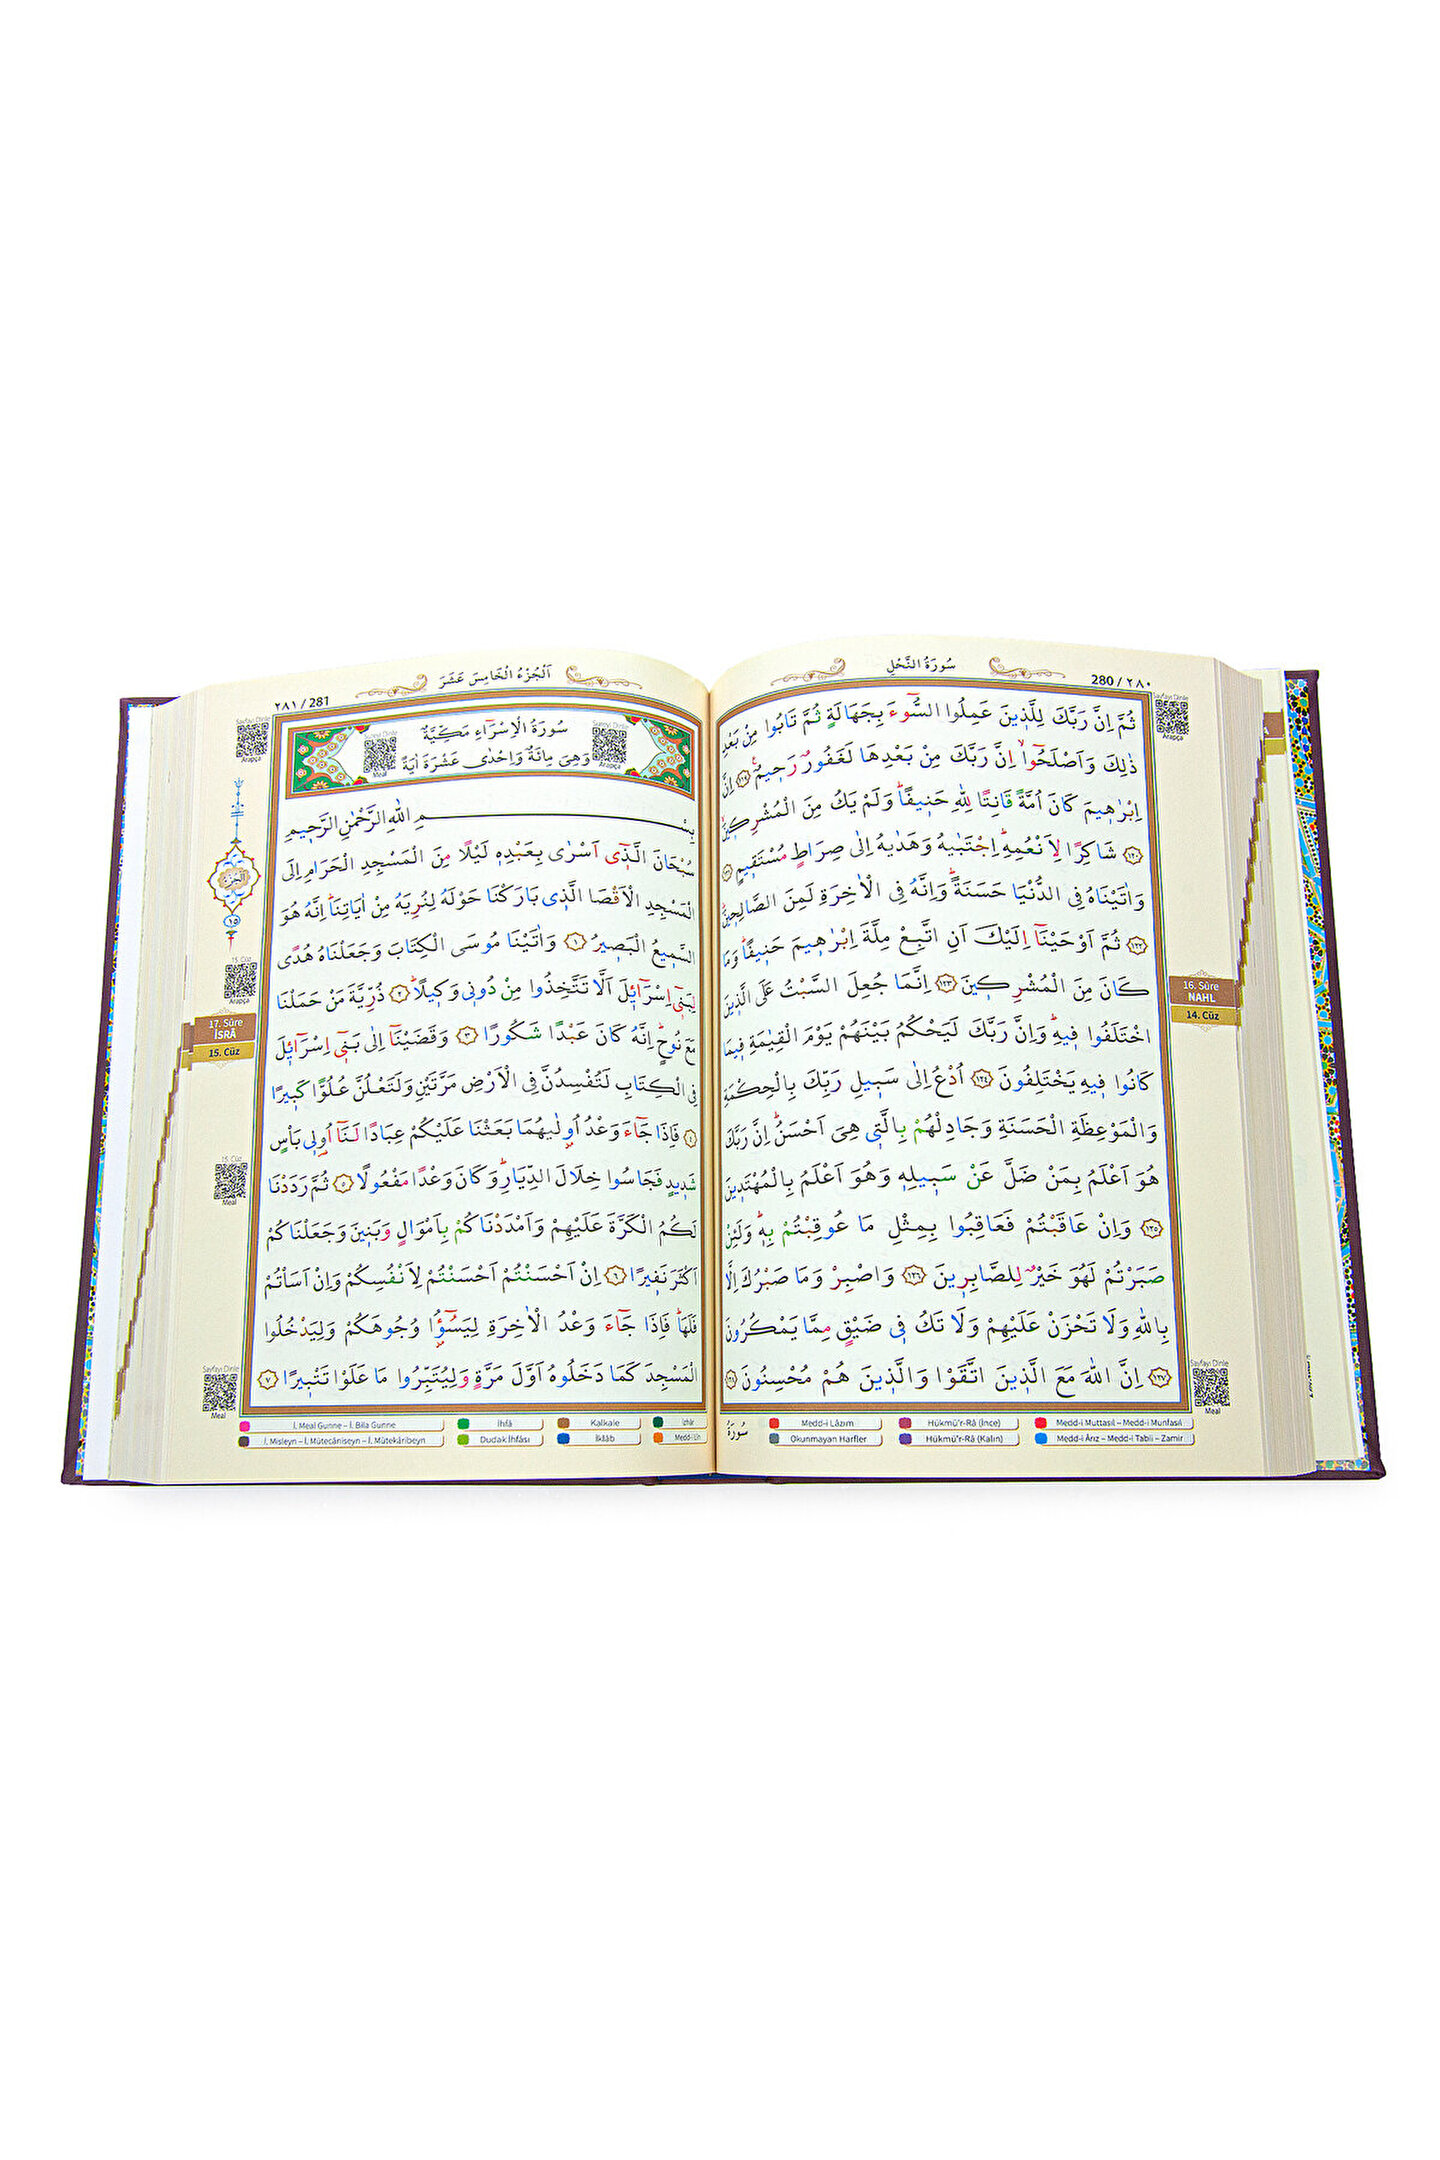 سُورَةُ النَّحْلِ
280 / ٢٨٠
Sayfayı Dinle
Arapça
ثُمَّ اِنَّ رَبَّكَ لِلَّذٖينَ عَمِلُوا السُّٓوءَ بِجَهَالَةٍ ثُمَّ تَابُوا مِنْ بَعْدِ
ذٰلِكَ وَاَصْلَحُٓوا اِنَّ رَبَّكَ مِنْ بَعْدِهَا لَغَفُورٌ رَحٖيمٌ ﴿١١٩﴾ اِنَّ
اِبْرٰهٖيمَ كَانَ اُمَّةً قَانِتًا لِلّٰهِ حَنٖيفًا وَلَمْ يَكُ مِنَ الْمُشْرِكٖينَ
﴿١٢٠﴾ شَاكِرًا لِاَنْعُمِهِ اِجْتَبٰيهُ وَهَدٰيهُ اِلٰى صِرَاطٍ مُسْتَقٖيمٍ ﴿١٢١﴾
وَاٰتَيْنَاهُ فِى الدُّنْيَا حَسَنَةً وَاِنَّهُ فِى الْاٰخِرَةِ لَمِنَ الصَّالِحٖينَ
﴿١٢٢﴾ ثُمَّ اَوْحَيْنَٓا اِلَيْكَ اَنِ اتَّبِعْ مِلَّةَ اِبْرٰهٖيمَ حَنٖيفًا وَمَا
كَانَ مِنَ الْمُشْرِكٖينَ ﴿١٢٣﴾ اِنَّمَا جُعِلَ السَّبْتُ عَلَى الَّذٖينَ
اخْتَلَفُوا فٖيهِ وَاِنَّ رَبَّكَ لَيَحْكُمُ بَيْنَهُمْ يَوْمَ الْقِيٰمَةِ فٖيمَا
كَانُوا فٖيهِ يَخْتَلِفُونَ ﴿١٢٤﴾ اُدْعُ اِلٰى سَبٖيلِ رَبِّكَ بِالْحِكْمَةِ
وَالْمَوْعِظَةِ الْحَسَنَةِ وَجَادِلْهُمْ بِالَّتٖى هِىَ اَحْسَنُ اِنَّ رَبَّكَ
هُوَ اَعْلَمُ بِمَنْ ضَلَّ عَنْ سَبٖيلِهٖ وَهُوَ اَعْلَمُ بِالْمُهْتَدٖينَ
﴿١٢٥﴾ وَاِنْ عَاقَبْتُمْ فَعَاقِبُوا بِمِثْلِ مَا عُوقِبْتُمْ بِهٖ وَلَئِنْ
صَبَرْتُمْ لَهُوَ خَيْرٌ لِلصَّابِرٖينَ ﴿١٢٦﴾ وَاصْبِرْ وَمَا صَبْرُكَ اِلَّا
بِاللّٰهِ وَلَا تَحْزَنْ عَلَيْهِمْ وَلَا تَكُ فٖى ضَيْقٍ مِمَّا يَمْكُرُونَ
﴿١٢٧﴾ اِنَّ اللّٰهَ مَعَ الَّذٖينَ اتَّقَوْا وَالَّذٖينَ هُمْ مُحْسِنُونَ ﴿١٢٨﴾
16. Sûre
NAHL
14. Cüz
Sayfayı Dinle
Meal
سُورَةُ
Medd-i Lâzım
Hükmü'r-Râ (İnce)
Medd-i Muttasıl – Medd-i Munfasıl
Okunmayan Harfler
Hükmü'r-Râ (Kalın)
Medd-i Ârız – Medd-i Tabii – Zamir
اَلْجُزْءُ الْخَامِسَ عَشَرَ
٢٨١ / 281
Sayfayı Dinle
Arapça
سُورَةُ الْاِسْرَٓاءِ مَكِّيَّةٌ
وَهِىَ مِائَةٌ وَاِحْدٰى عَشْرَةَ اٰيَةً
Sureyi Dinle
Arapça
Sureyi Dinle
Meal
بِسْمِ اللّٰهِ الرَّحْمٰنِ الرَّحٖيمِ
سُبْحَانَ الَّذٖٓى اَسْرٰى بِعَبْدِهٖ لَيْلًا مِنَ الْمَسْجِدِ الْحَرَامِ اِلَى
الْمَسْجِدِ الْاَقْصَا الَّذٖى بَارَكْنَا حَوْلَهُ لِنُرِيَهُ مِنْ اٰيَاتِنَا اِنَّهُ هُوَ
السَّمٖيعُ الْبَصٖيرُ ﴿١﴾ وَاٰتَيْنَا مُوسَى الْكِتَابَ وَجَعَلْنَاهُ هُدًى
لِبَنٖٓى اِسْرَٓائٖلَ اَلَّا تَتَّخِذُوا مِنْ دُونٖى وَكٖيلًا ﴿٢﴾ ذُرِّيَّةَ مَنْ حَمَلْنَا
مَعَ نُوحٍ اِنَّهُ كَانَ عَبْدًا شَكُورًا ﴿٣﴾ وَقَضَيْنَٓا اِلٰى بَنٖٓى اِسْرَٓائٖلَ
فِى الْكِتَابِ لَتُفْسِدُنَّ فِى الْاَرْضِ مَرَّتَيْنِ وَلَتَعْلُنَّ عُلُوًّا كَبٖيرًا
﴿٤﴾ فَاِذَا جَٓاءَ وَعْدُ اُو۫لٰيهُمَا بَعَثْنَا عَلَيْكُمْ عِبَادًا لَنَٓا اُو۬لٖى بَاْسٍ
شَدٖيدٍ فَجَاسُوا خِلَالَ الدِّيَارِ وَكَانَ وَعْدًا مَفْعُولًا ﴿٥﴾ ثُمَّ رَدَدْنَا
لَكُمُ الْكَرَّةَ عَلَيْهِمْ وَاَمْدَدْنَاكُمْ بِاَمْوَالٍ وَبَنٖينَ وَجَعَلْنَاكُمْ
اَكْثَرَ نَفٖيرًا ﴿٦﴾ اِنْ اَحْسَنْتُمْ اَحْسَنْتُمْ لِاَنْفُسِكُمْ وَاِنْ اَسَاْتُمْ
فَلَهَا فَاِذَا جَٓاءَ وَعْدُ الْاٰخِرَةِ لِيَسُٓؤُ۫ا وُجُوهَكُمْ وَلِيَدْخُلُوا
الْمَسْجِدَ كَمَا دَخَلُوهُ اَوَّلَ مَرَّةٍ وَلِيُتَبِّرُوا مَا عَلَوْا تَتْبٖيرًا ﴿٧﴾
اَلْجُزْءُ
١٥
15. Cüz
Arapça
17. Sûre
İSRÂ
15. Cüz
15. Cüz
Meal
Sayfayı Dinle
Meal
İ. Meal Gunne – İ. Bila Gunne
İhfâ
Kalkale
İzhâr
İ. Misleyn – İ. Mütecâniseyn – İ. Mütekâribeyn
Dudak İhfâsı
İklâb
Medd-i Lîn